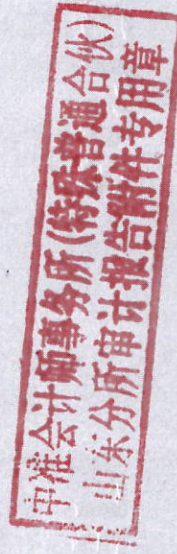 中准会计师事务所(特殊普通合伙)
山东分所审计报告附件专用章